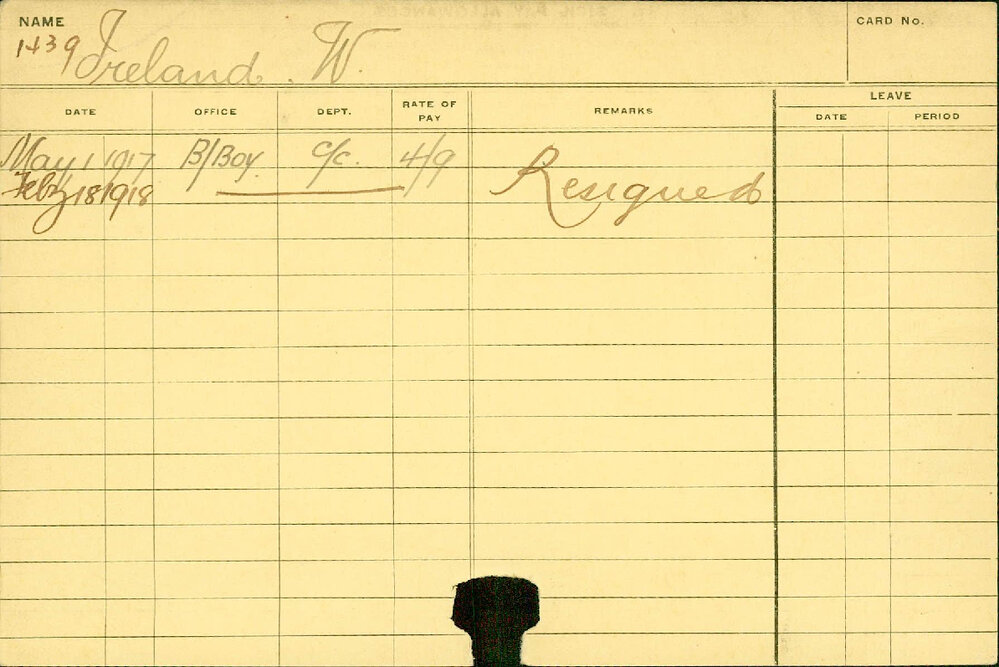 NAME
CARD No.
1439 Ireland. W.
LEAVE
DATE OFFICE DEPT. RATE OF PAY REMARKS DATE PERIOD
May 1 1917 B/Boy. C/C. 4/9
Feby 18 1918 Resigned